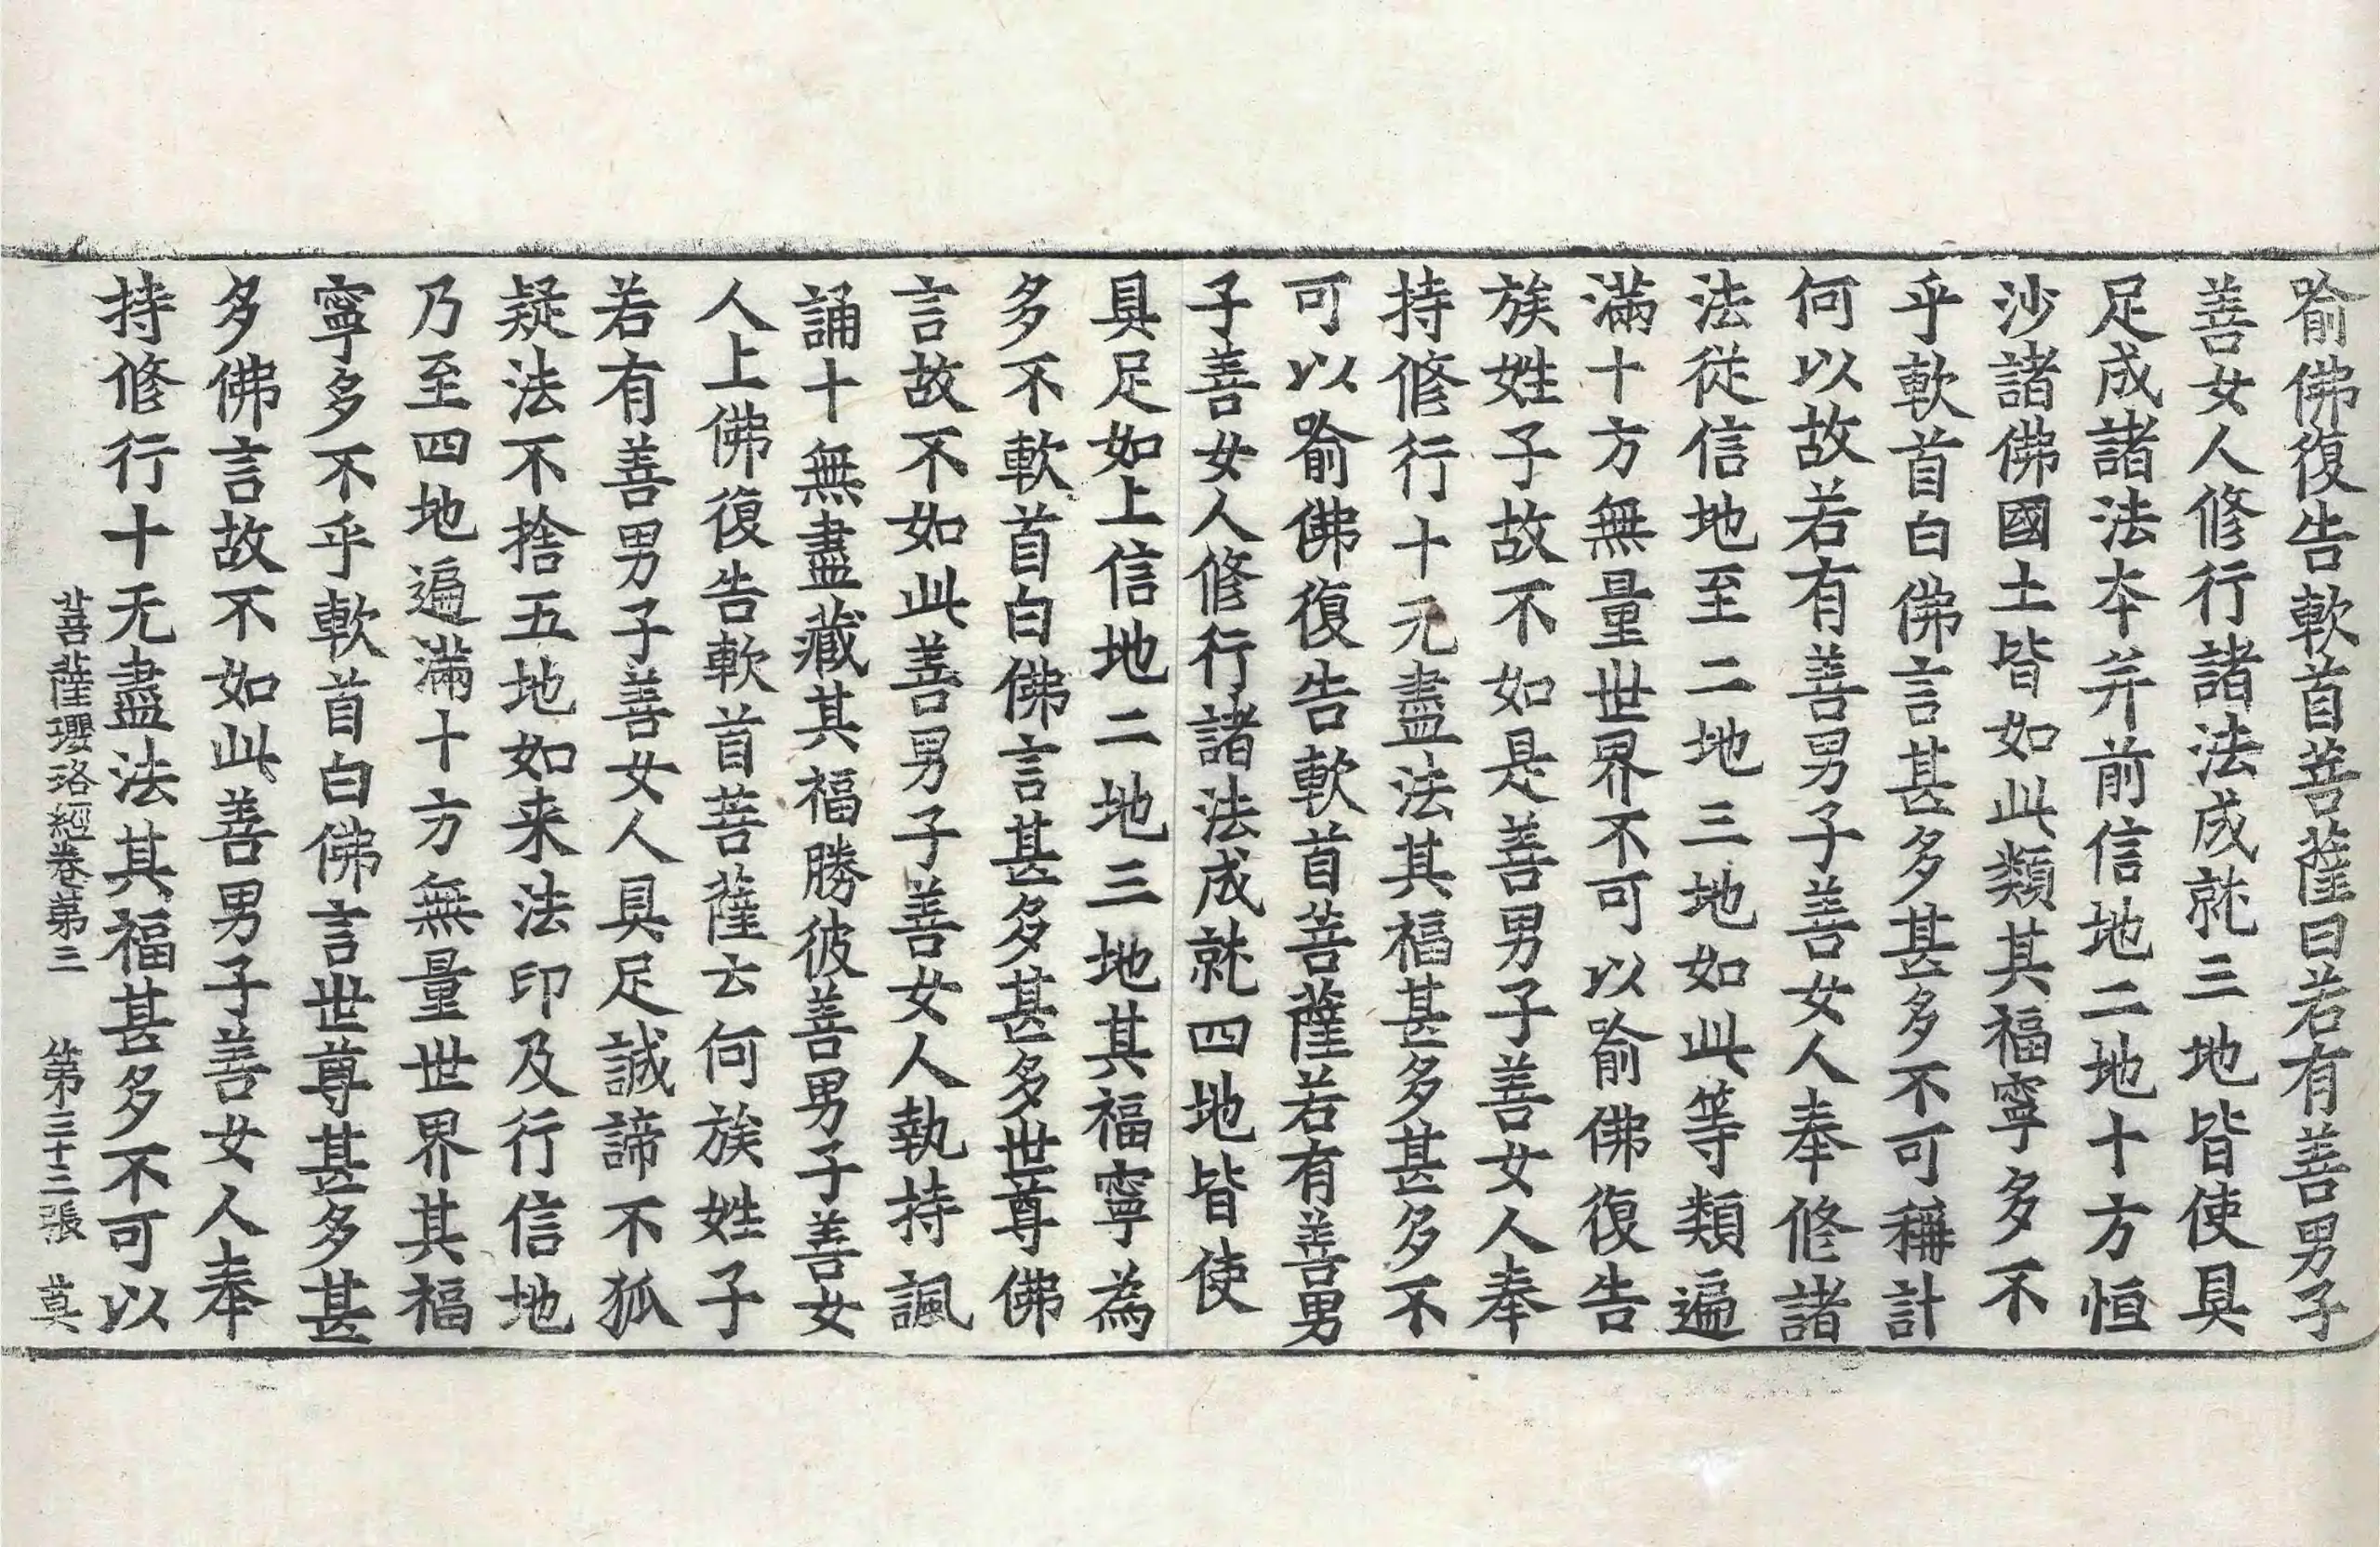 喻佛復告軟首菩薩曰若有善男子
善女人修行諸法成就三地皆使具
足成諸法本并前信地二地十方恒
沙諸佛國土皆如此類其福寧多不
乎軟首白佛言甚多甚多不可稱計
何以故若有善男子善女人奉修諸
法從信地至二地三地如此等類遍
滿十方無量世界不可以喻佛復告
族姓子故不如是善男子善女人奉
持修行十无盡法其福甚多甚多不
可以喻佛復告軟首菩薩若有善男
子善女人修行諸法成就四地皆使
具足如上信地二地三地其福寧為
多不軟首白佛言甚多甚多世尊佛
言故不如此善男子善女人執持諷
誦十無盡藏其福勝彼善男子善女
人上佛復告軟首菩薩云何族姓子
若有善男子善女人具足誠諦不狐
疑法不捨五地如来法印及行信地
乃至四地遍滿十方無量世界其福
寧多不乎軟首白佛言世尊甚多甚
多佛言故不如此善男子善女人奉
持修行十无盡法其福甚多不可以
菩薩瓔珞經卷第三 第三十三張 莫